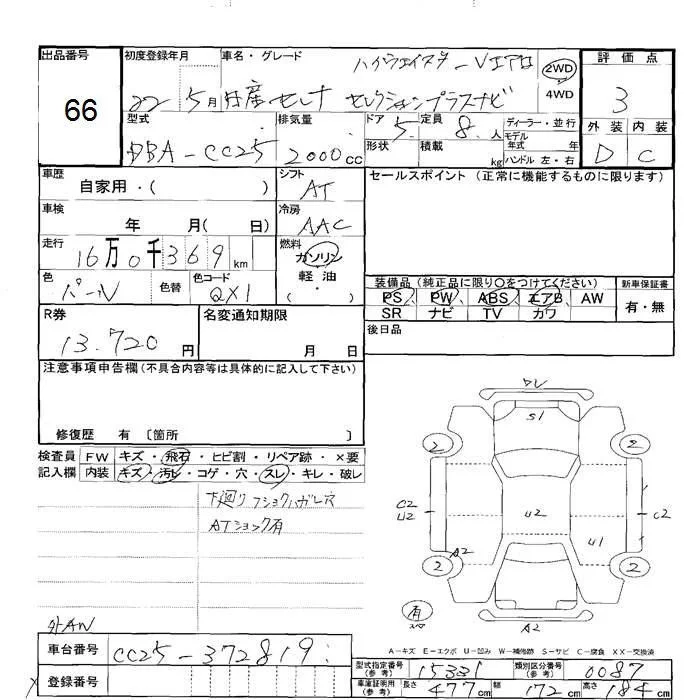 出品番号
66
初度登録年月
22 5月
車名・グレード
ハイウェイスターVエアロ
日産セレナ セレクションプラスナビ
2WD
4WD
評価点
3
外装 内装
D C
型式
DBA-CC25
排気量
2000cc
ドア
5
定員
8人
形状
積載
kg
ディーラー・並行
モデル年式 年
ハンドル 左・右
車歴
自家用・( )
シフト
AT
車検
年 月( 日)
冷房
AAC
走行
16万0千369km
燃料
ガソリン
軽・油
( ・ )
色
パール
色替
色コード
QX1
セールスポイント (正常に機能するものに限ります)
装備品 (純正品に限り○をつけてください)
PS PW ABS エアB AW
SR ナビ TV カワ
新車保証書
有・無
R券
13.720円
名変通知期限
月 日
後日品
注意事項申告欄 (不具合内容等は具体的に記入して下さい)
修復歴 有 〔箇所 〕
検査員記入欄
FW キズ・飛石・ヒビ割・リペア跡・×要
内装 キズ・汚レ・コゲ・穴・スレ・キレ・破レ
ATショック有
外AW
ワレ
S1
2
2
C2
U2
U2
C2
U1
A2
2
2
有
A2
A-キズ E-エクボ U-凹み W-補修跡 S-サビ C-腐食 XX-交換済
車台番号
CC25-372819
登録番号
型式指定番号(参考)
15331
類別区分番号(参考)
0087
車庫証明用(参考)
長さ 477cm
幅 172cm
高さ 184cm